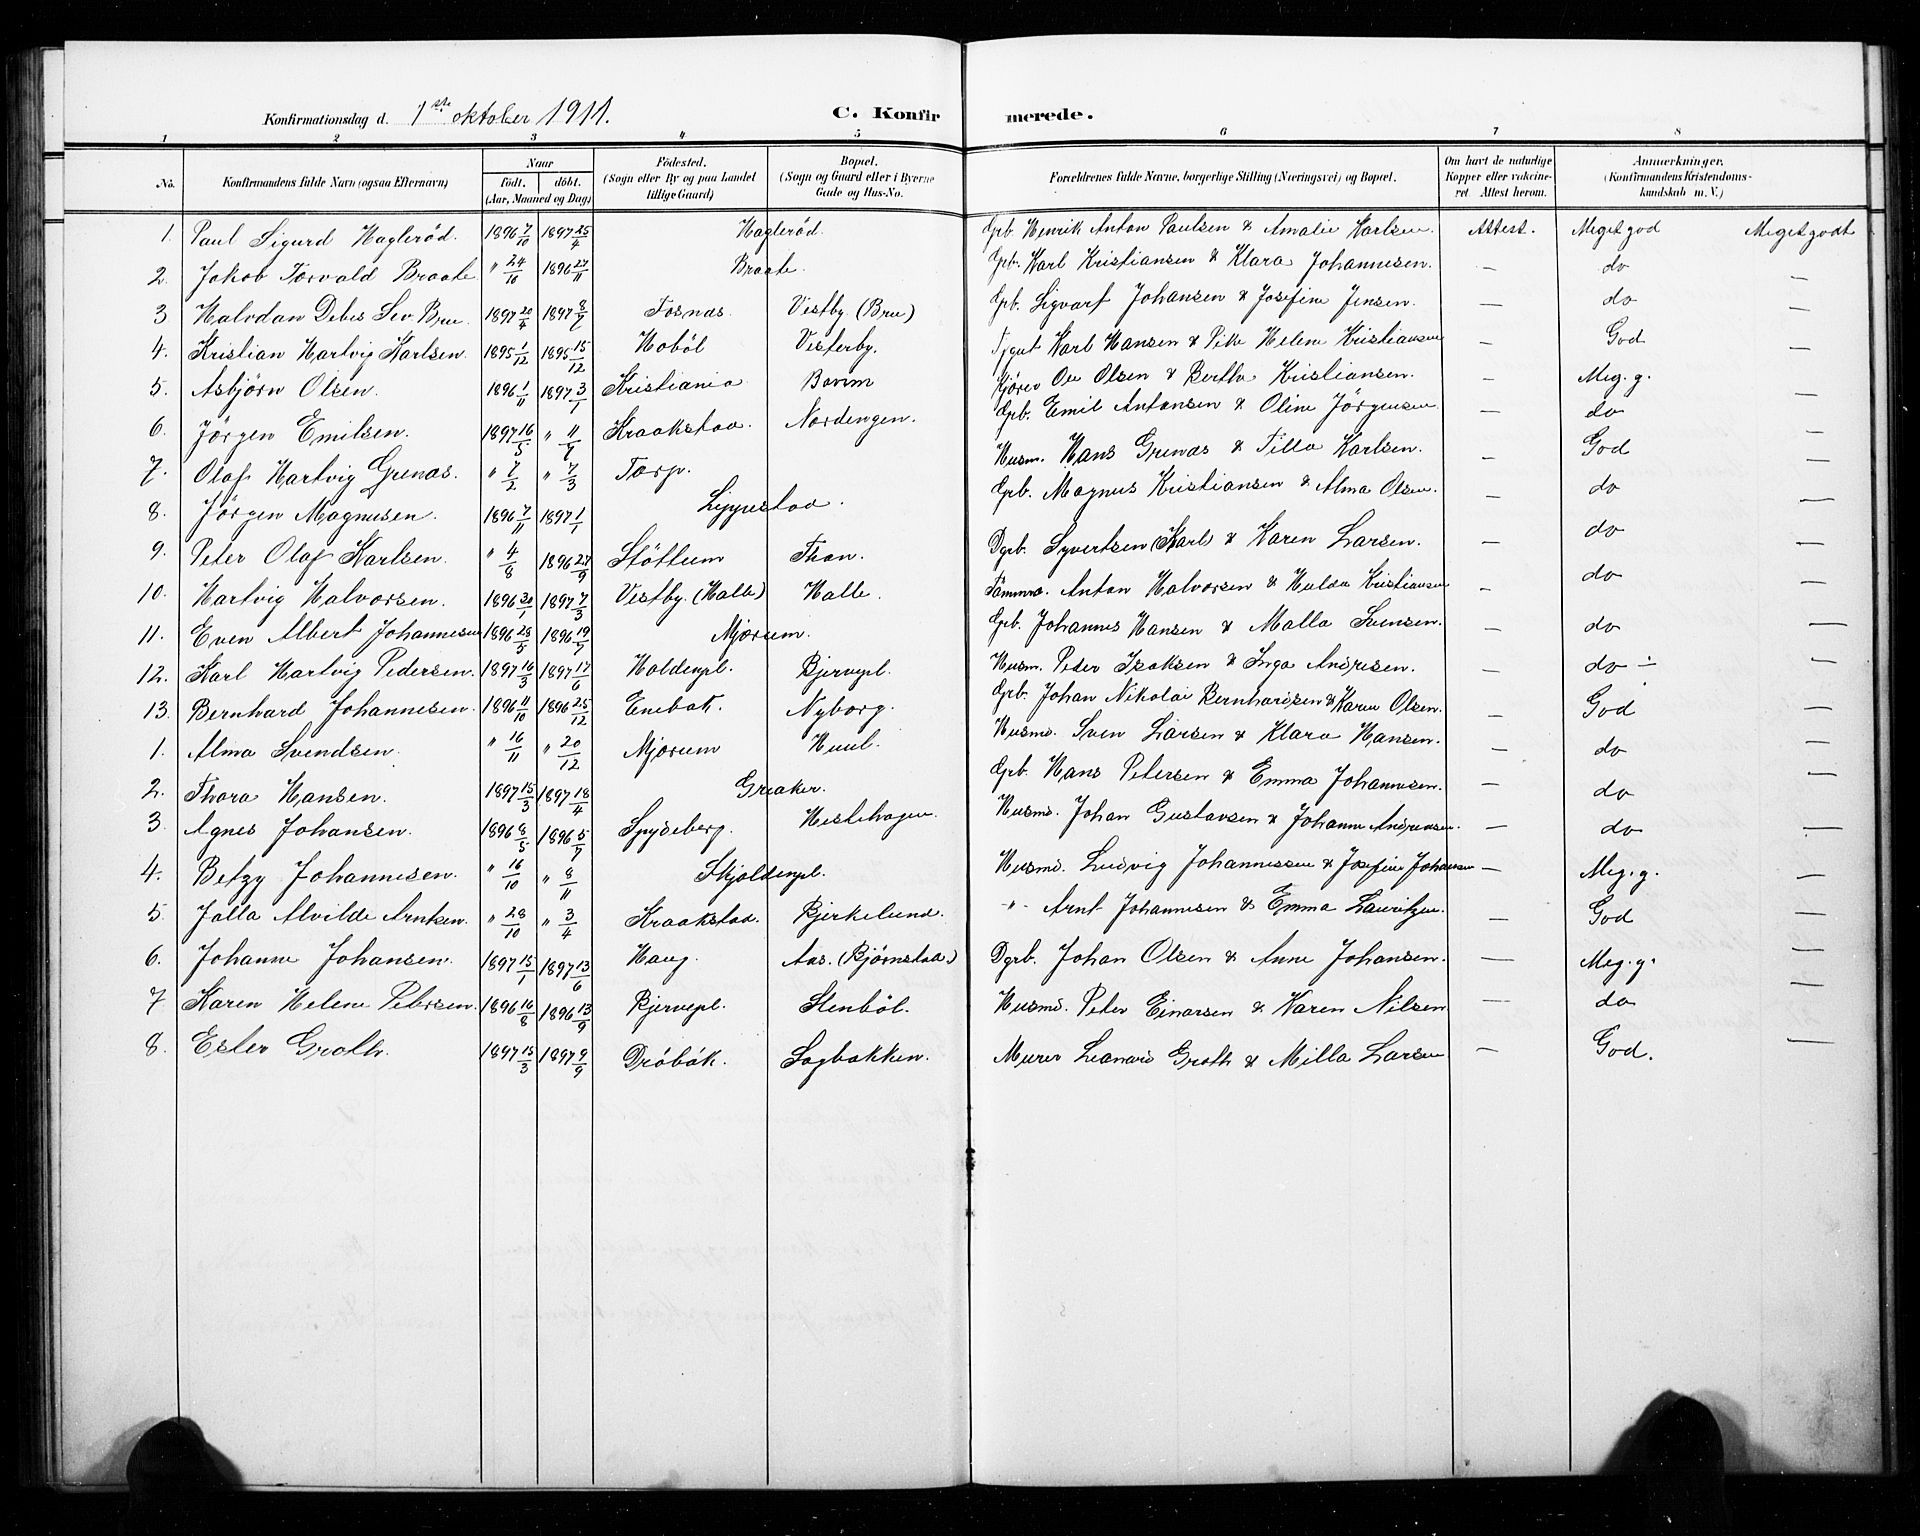 Konfirmationsdag d. 1ste oktober 1911. C. Konfirmerede.
1 2 3 4 5 6 7 8
No. Konfirmandens fulde Navn (ogsaa Efternavn) Naar født. døbt. (Aar, Maaned og Dag) Födested. (Sogn eller By og paa Landet tillige Gaard) Bopæl. (Sogn og Gaard eller i Byerne Gade og Hus-No. Forældrenes fulde Navne, borgerlige Stilling (Næringsvei) og Bopæl. Om havt de naturlige Kopper eller vakcineret Attest herom. Anmærkninger. (Konfirmandens Kristendomskundskab m. V.)
1. Paul Sigurd Haglerød. 1896 7/10 1897 25/4 Haglerød. Grb. Henrik Anton Paulsen & Amalie Karlsen. Attest. Meget god Meget godt
2. Jakob Torvald Braate " 24/10 1896 27/11 Braate. Grb. Karl Kristiansen & Klara Johannesen. — do —
3. Halvdan Debes Sev. Bru 1897 20/4 1897 8/7 Fosnæs. Vestby (Bru) Grb. Sigvart Johansen & Josefine Jensen. — do —
4. Kristian Hartvig Karlsen. 1895 1/12 1895 15/12 Hobøl Vesterby. Tjgut Karl Hansen & Pike Helene Kristiansen — God —
5. Asbjörn Olsen. 1896 1/11 1897 3/1 Kristiania Bovim Kjörer Ole Olsen & Bertha Kristiansen. — Meg. g. —
6. Jörgen Emilsen. 1897 16/5 " 11/7 Kraakstad. Nordengen. Grb. Emil Antonsen & Oline Jörgensen — do —
7. Olaf Hartvig Grenas. " 7/2 " 7/3 Torp. Husm. Hans Grenas & Tilla Karlsen. — God —
8. Jörgen Magnusen. 1896 7/11 1897 1/1 Lippestad. Grb. Magnus Kristiansen & Alma Olsen. — do —
9. Peter Olaf Karlsen. " 4/8 1896 27/9 Støttum Thon. Dgrb. Syvertsen (Karl) & Karen Larsen. — do —
10. Hartvig Halvorsen. 1896 30/1 1897 7/3 Vestby. (Halle) Halle. Tömmm. Anton Halvorsen & Hulda Kristiansen — do —
11. Even Albert Johannesen 1896 28/5 1896 19/7 Mjærum. Grb. Johannes Hansen & Malla Svensen. — do —
12. Karl Hartvig Pedersen. 1897 16/3 1897 17/6 Holdenpl. Bjervepl. Husm. Peder Isaksen & Inga Andresen. — do —
13. Bernhard Johannesen. 1896 11/10 1896 25/12 Enebak. Nyborg. Grb. Johan Nikolai Bernhardsen & Karen Olsen. — God —
1. Alma Svendsen. " 16/11 " 20/12 Mjærum Huul. Husmd. Sven Larsen & Klara Hansen. — do —
2. Thora Hansen. 1897 15/3 1897 18/4 Greaker. Grb. Hans Petersen & Emma Johannesen. — do —
3. Agnes Johansen. 1896 8/5 1896 5/7 Spydeberg. Hestehagen. Husmd. Johan Gustavsen & Johanne Andreasen. — do —
4. Betzy Johannesen. " 16/10 " 8/11 Skjoldenpl. Husmd. Ludvig Johannessen & Josefine Johansen — Meg. g. —
5. Jalla Alvilde Arntzen. " 28/10 " 3/4 Kraakstad. Bjerkelund. " Arnt Johannesen & Emma Lauritzen. — God —
6. Johanne Johansen. 1897 15/1 1897 13/6 Haug. Aas. (Bjørnstad.) Dgrb. Johan Olsen & Anne Johansen. — Meg. g. —
7 Karen Helene Petersen. 1896 16/8 1896 13/9 Bjervepl. Stenbøl. Husmd. Peter Einarsen & Karen Nilsen — do —
8. Ester Groth. 1897 15/3 1897 9/9 Drøbak. Sagbakken. Murer Leonard Groth & Milla Larsen — God. —